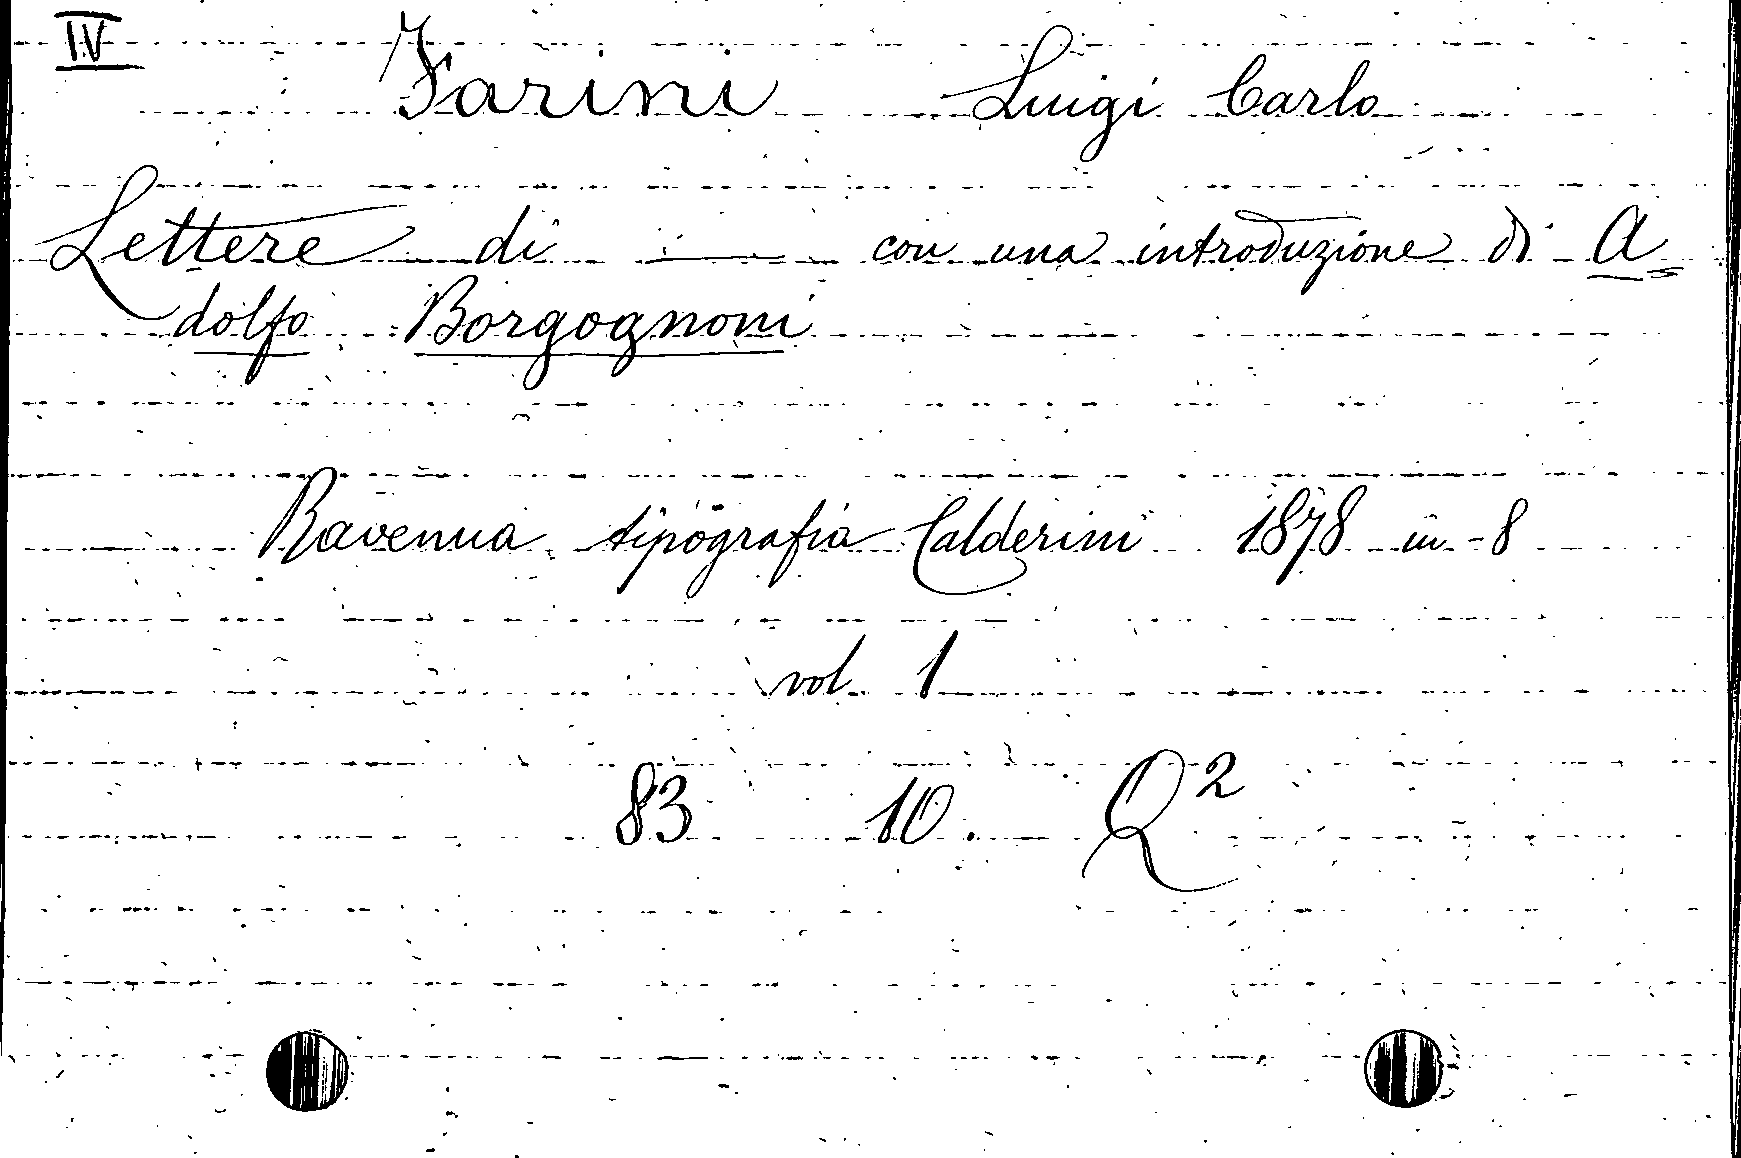 IV
Farini Luigi Carlo
Lettere di — con una introduzione di A=
dolfo Borgognoni
Ravenna tipografia Calderini 1878 in-8
vol. 1
83 10. Q²